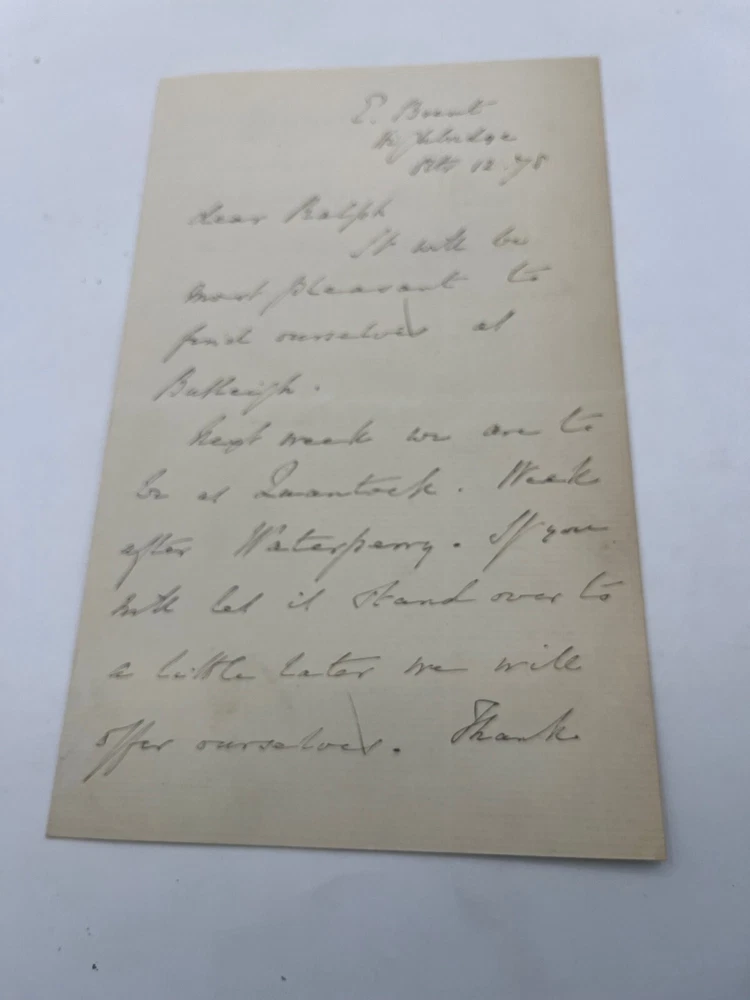 E. Brent
Highbridge
Oct 12. 78
Dear Ralph
It will be
most pleasant to
find ourselves at
Butleigh.
Next week we are to
be at Quantock. Week
after Waterperry. If you
will let it stand over to
a little later we will
offer ourselves. Thank